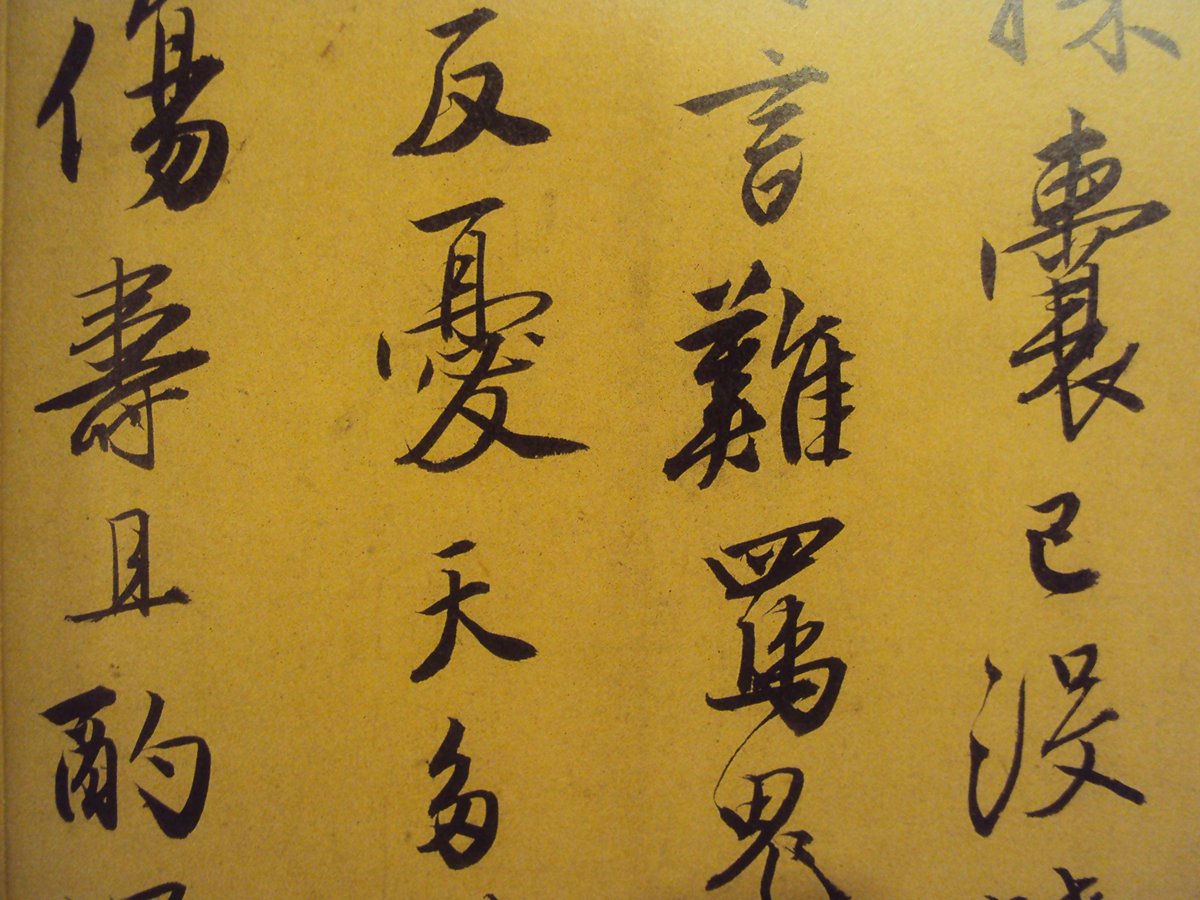 囊已没
言難罵
反憂天多
傷壽且酌